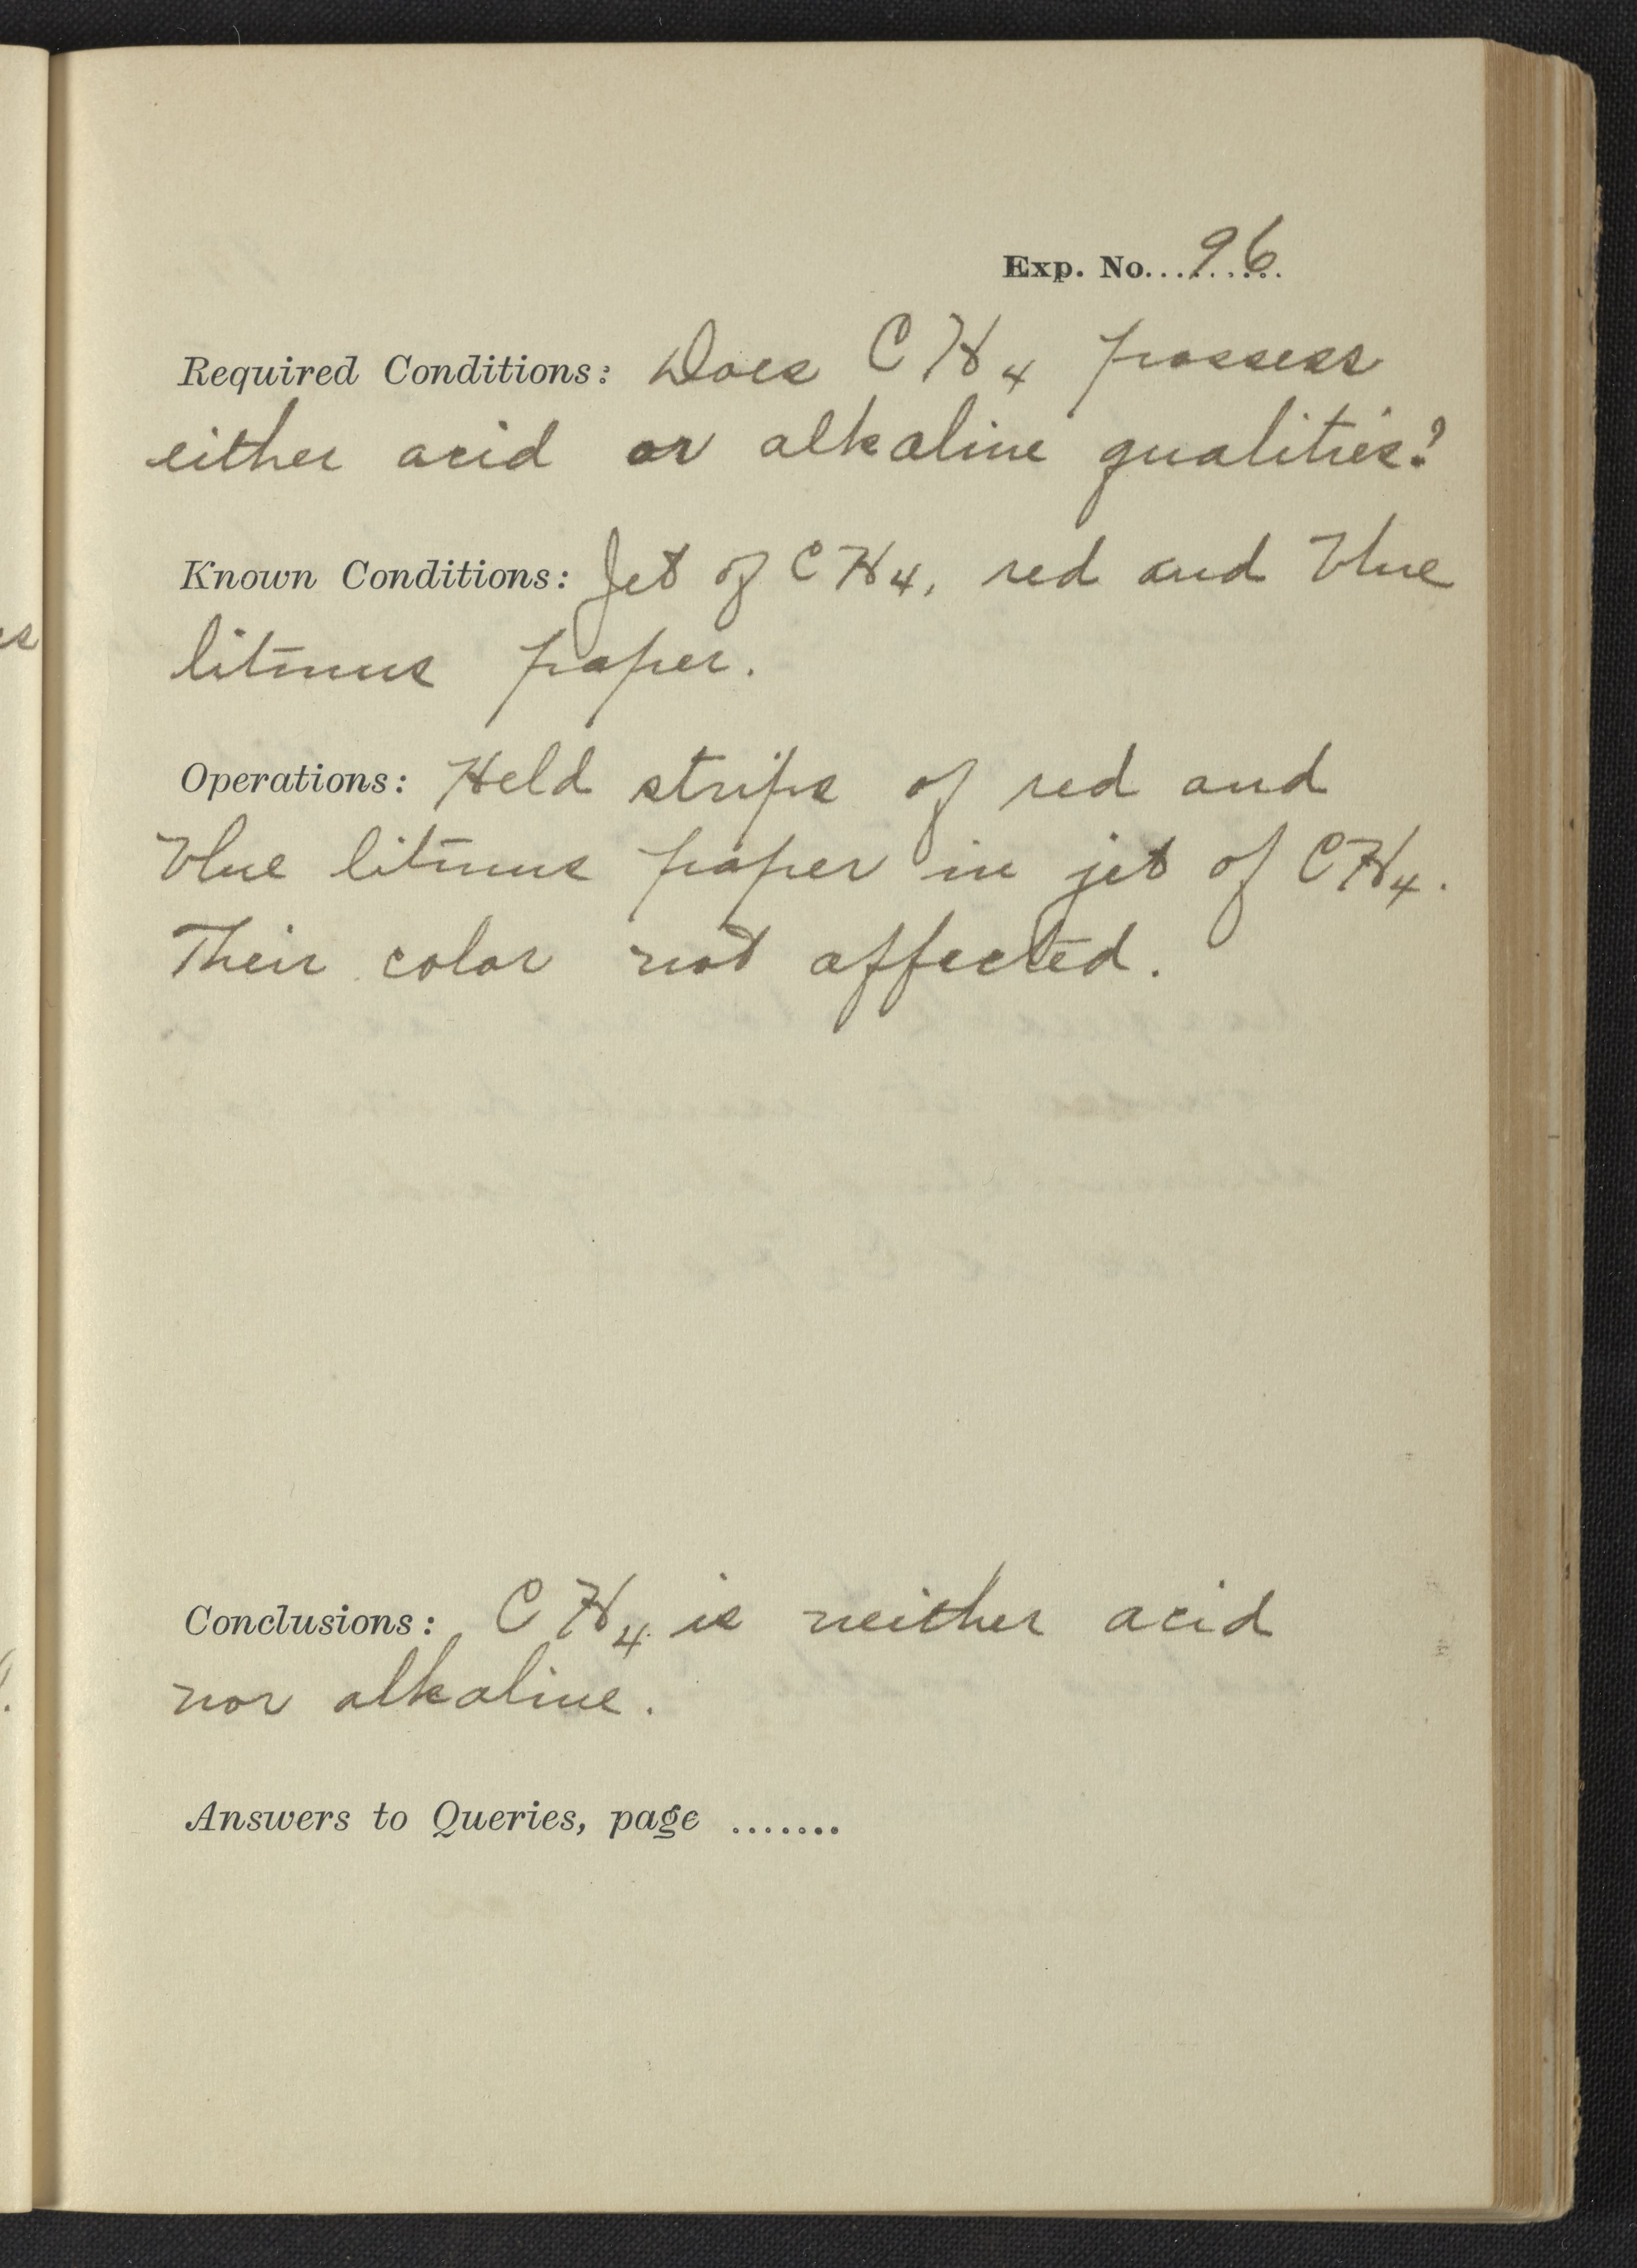 Exp. No. 96
Required Conditions: Does CH4 possess
either acid or alkaline qualities?
Known Conditions: Jet of CH4, red and blue
litmus paper.
Operations: Held strips of red and
blue litmus paper in jet of CH4.
Their color not affected.
Conclusions: CH4 is neither acid
nor alkaline.
Answers to Queries, page .......